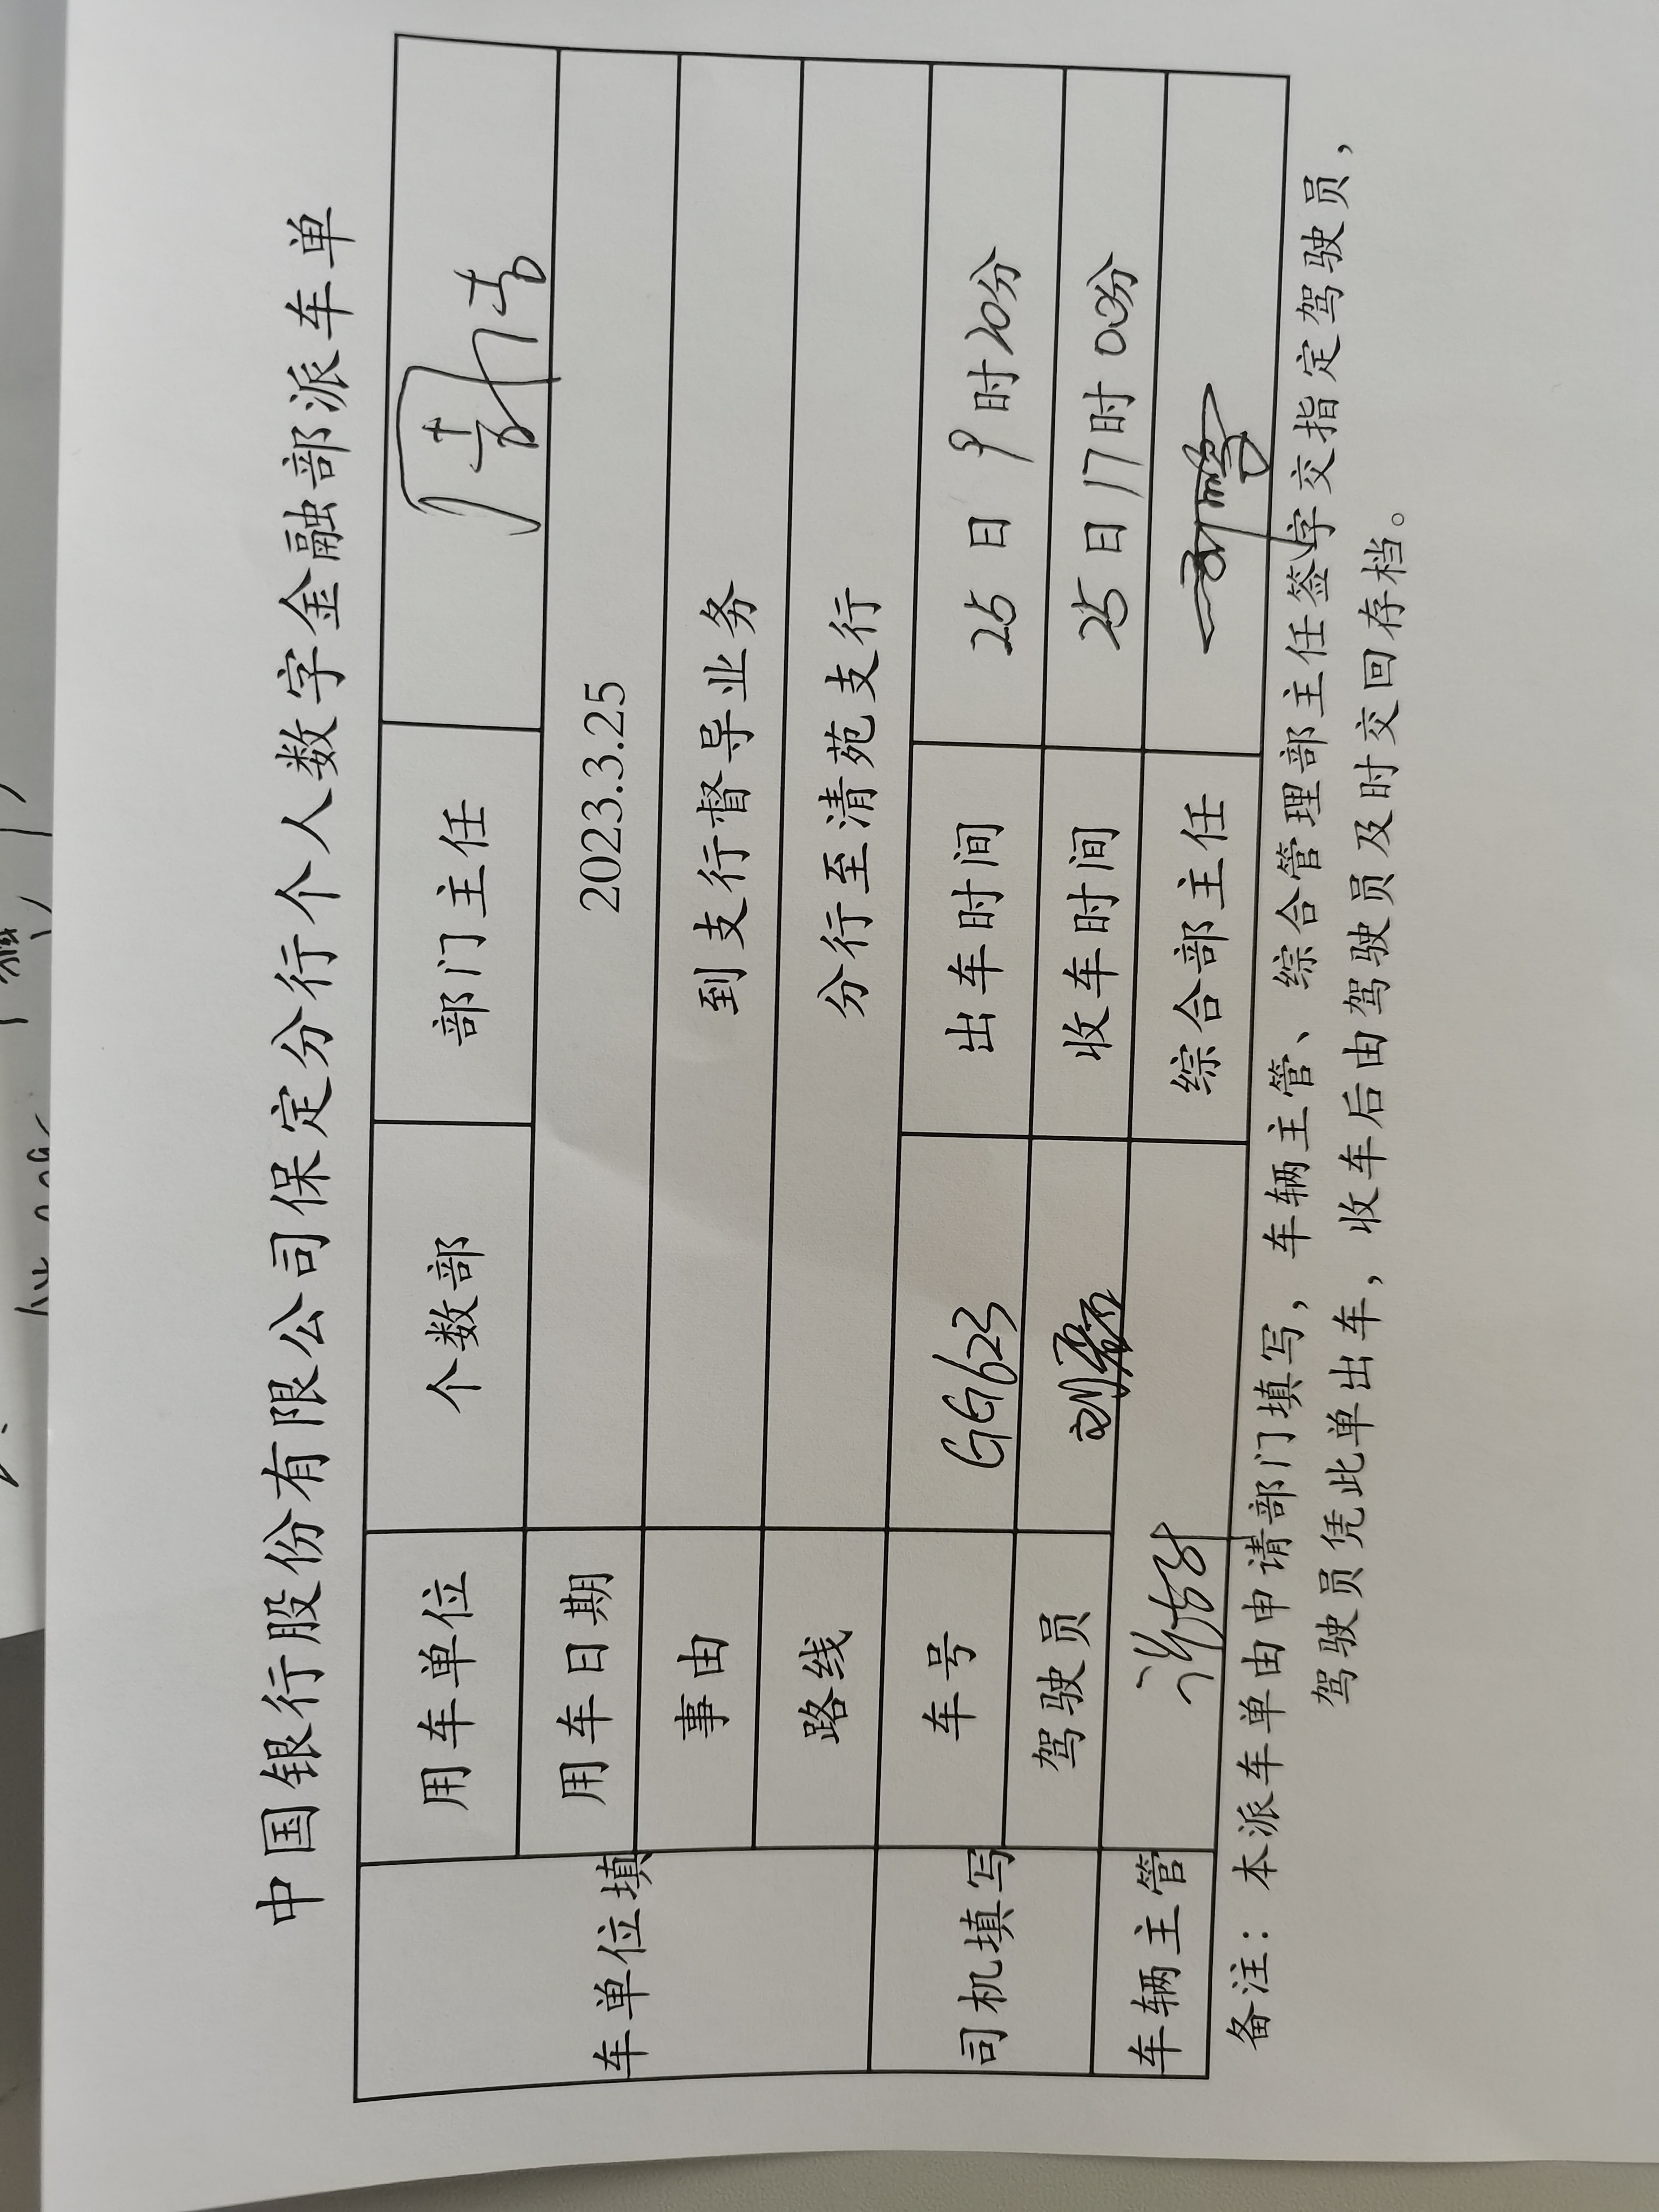 中国银行股份有限公司保定分行个人数字金融部派车单
车单位填
用车单位 个数部 部门主任
用车日期 2023.3.25
事由 到支行督导业务
路线 分行至清苑支行
司机填写
车号 GG623 出车时间 25日9时20分
驾驶员 收车时间 25日17时00分
车辆主管 综合部主任
备注：本派车单由申请部门填写，车辆主管、综合管理部主任签字交指定驾驶员，
驾驶员凭此单出车，收车后由驾驶员及时交回存档。